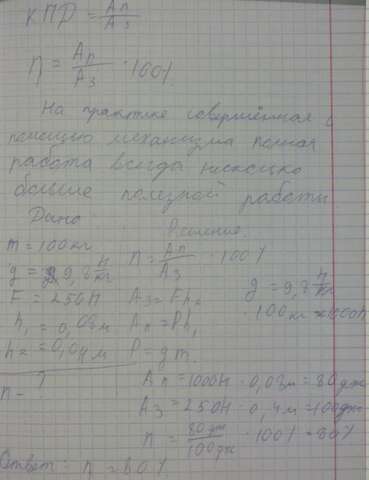 КПР = Ап / Аз
η = Ап / Аз · 100%
На практике совершённая с
помощью механизма полная
работа всегда несколько
больше полезной работы
Дано
Решение.
m = 100 кг
g = 9,8 Н/кг
F = 250Н
h₁ = 0,08 м
h₂ = 0,04 м
η - ?
η = Ап / Аз · 100%
Аз = Fh₂
Ап = Ph₁
P = gm.
g = 9,8 Н/кг
· 100 кг = 1000Н
Ап = 1000Н · 0,08м = 80дж
Аз = 250Н · 0,4м = 100дж
η = 80дж / 100дж · 100% = 80%
Ответ: η = 80%